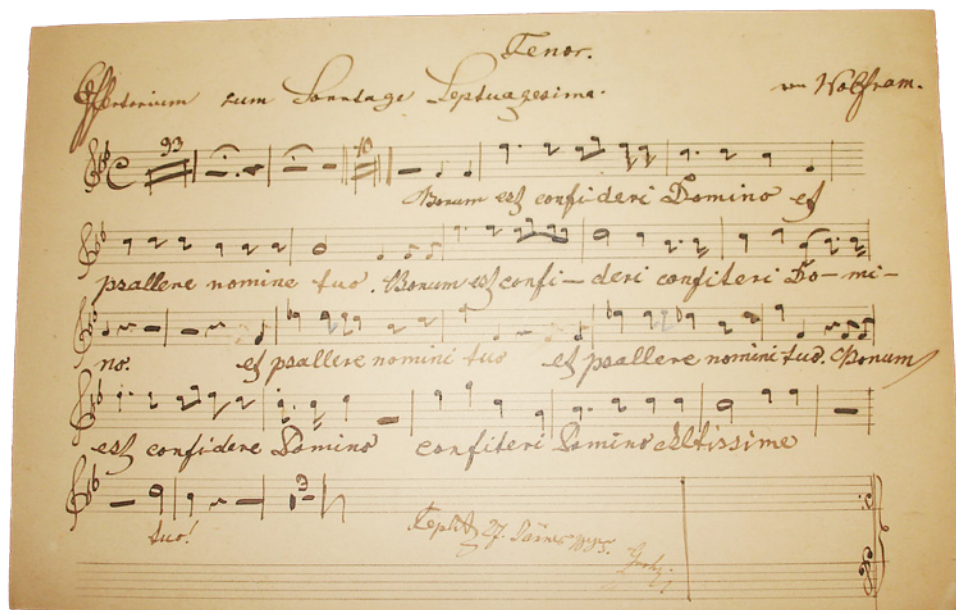 Tenor.
Offertorium zum Sonntage Septuagesima. von Wolfram.
93 10
Bonum est confideri Domino et
psallene nomine tuo. Bonum est confi– deri confiteri Do–mi–
no. et psallere nomini tuo et psallere nomini tuo. Bonum
est confidere Domino confiteri Domino Altissime
3
tuo! Teplitz 27. Jänner